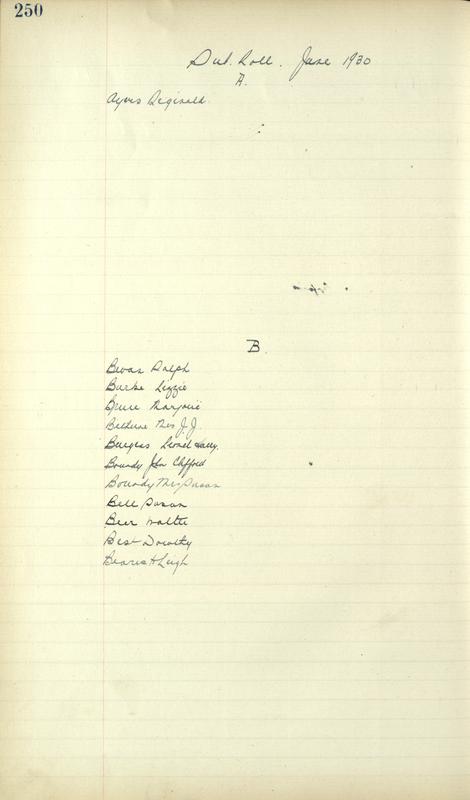 250
Sub. Roll. June 1930
A.
Ayers Reginald.
B.
Bevan Ralph
Burke Lizzie
Bruce Marjorie
Bethune Mrs J.J.
Burgess Lionel Harry.
Boundy John Clifford
Boundy Mrs Susan
Bell Susan
Beer Walter
Best Dorothy
Leigh